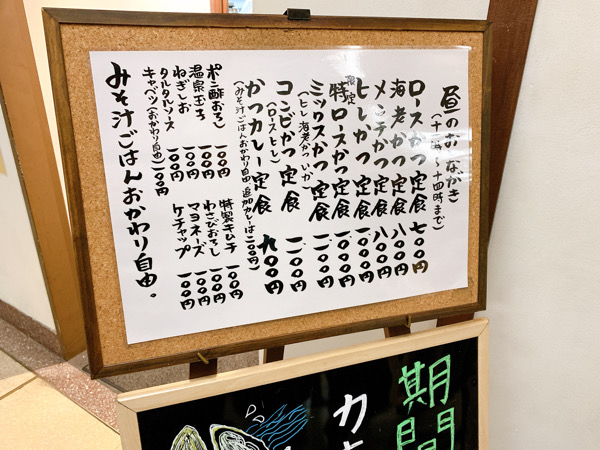 昼のおしながき
(十一時〜十四時まで)
ロースかつ定食 七〇〇円
海老かつ定食 八〇〇円
メンチかつ定食 八〇〇円
ヒレかつ定食 一〇〇〇円
限定 特ロースかつ定食 一〇〇〇円
ミックスかつ定食 一一〇〇円
(ヒレ 海老かつ いか)
コンビかつ定食 一一〇〇円
(ロースヒレ)
かつカレー定食 九〇〇円
(みそ汁ごはんおかわり自由 追加カレーは二〇〇円)
ポン酢おろし 一〇〇円
温泉玉子 一〇〇円
ねぎしお 一〇〇円
タルタルソース 一〇〇円
キャベツ(おかわり自由)一〇〇円
特製キムチ 一〇〇円
わさびおろし 一〇〇円
マヨネーズ 一〇〇円
ケチャップ 一〇〇円
みそ汁ごはんおかわり自由。
期間
カキ